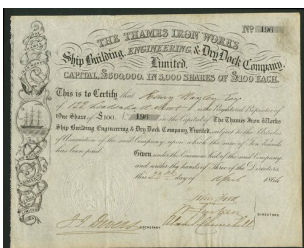 Nº 196
THE THAMES IRON WORKS
Ship Building, ENGINEERING, & Dry Dock Company,
Limited.
CAPITAL, £600,000. IN 6,000 SHARES OF £100 EACH.
This is to Certify that Henry
of is the Registered Proprietor of
One Share of £100. 196 in the Capital of The Thames Iron Works
Ship Building Engineering & Dry Dock Company, Limited, subject to the Articles
of Association of the said Company upon which the sum of Ten Pounds
has been paid.
Given under the Common Seal of the said Company
and under the hands of Three of the Directors
this day of April 1864
DIRECTORS
SECRETARY